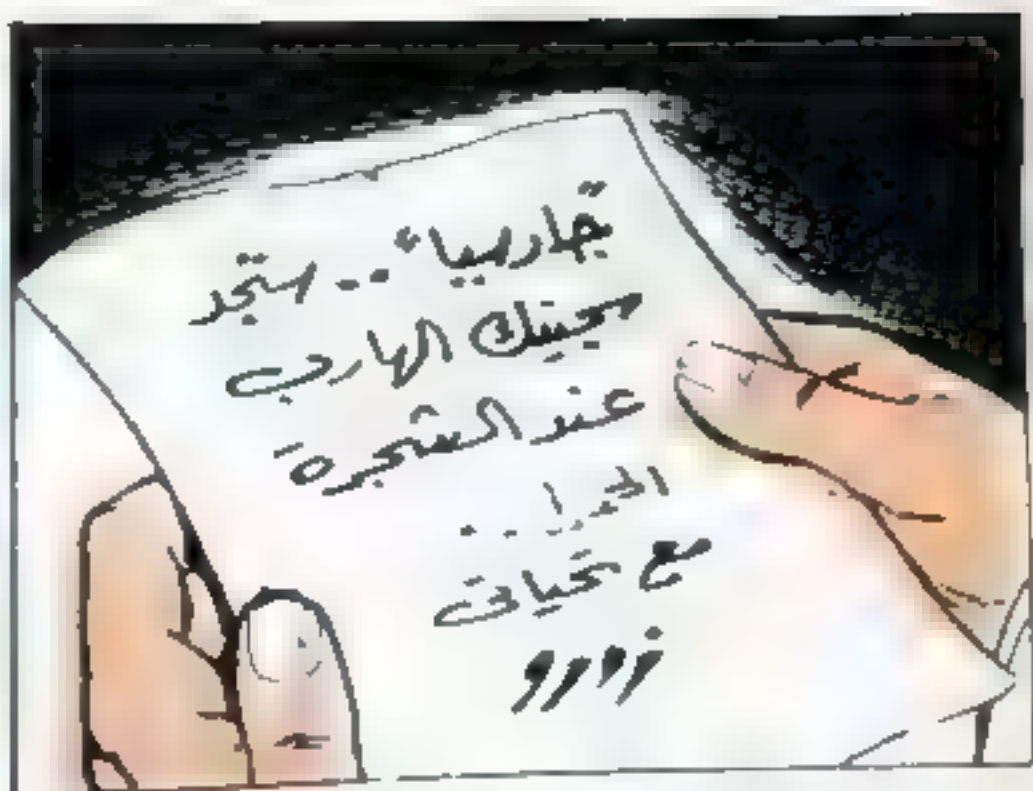 جارسيا .. ستجد
سجينك الهارب
عند الشجرة
مع تحياتى
زورو